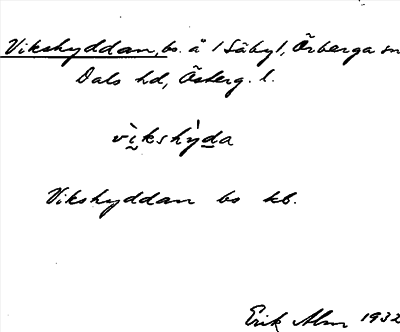 Vikshyddan, bs. å /Säby/, Örberga sn
Dals hd, Österg. l.
vìkshỳda
Vikshyddan bs kb.
Erik Alm 1932